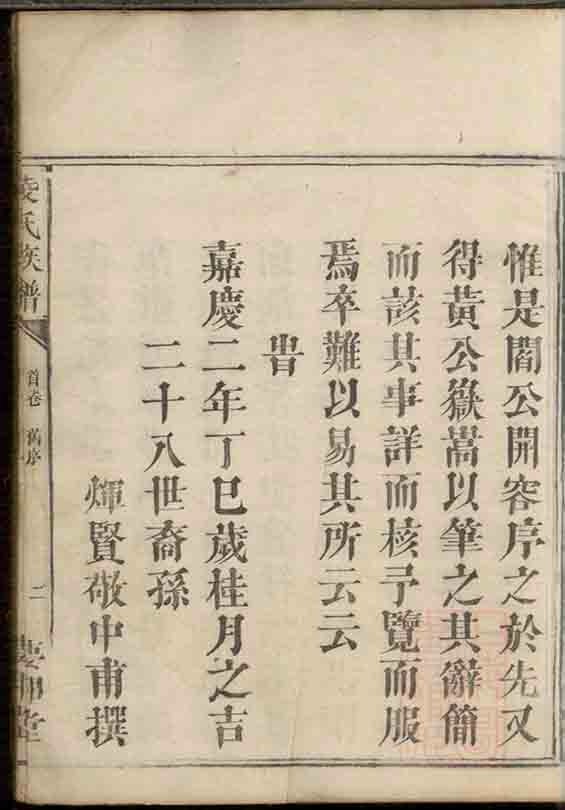 惟是閻公開容序之於先又
得黃公嶽嵩以筆之其辭簡
而該其事詳而核予覽而服
焉卒難以易其所云云
旹
嘉慶二年丁巳歲桂月之吉
二十八世裔孫
煇賢敬中甫撰
凌氏族譜
首卷 舊序
二